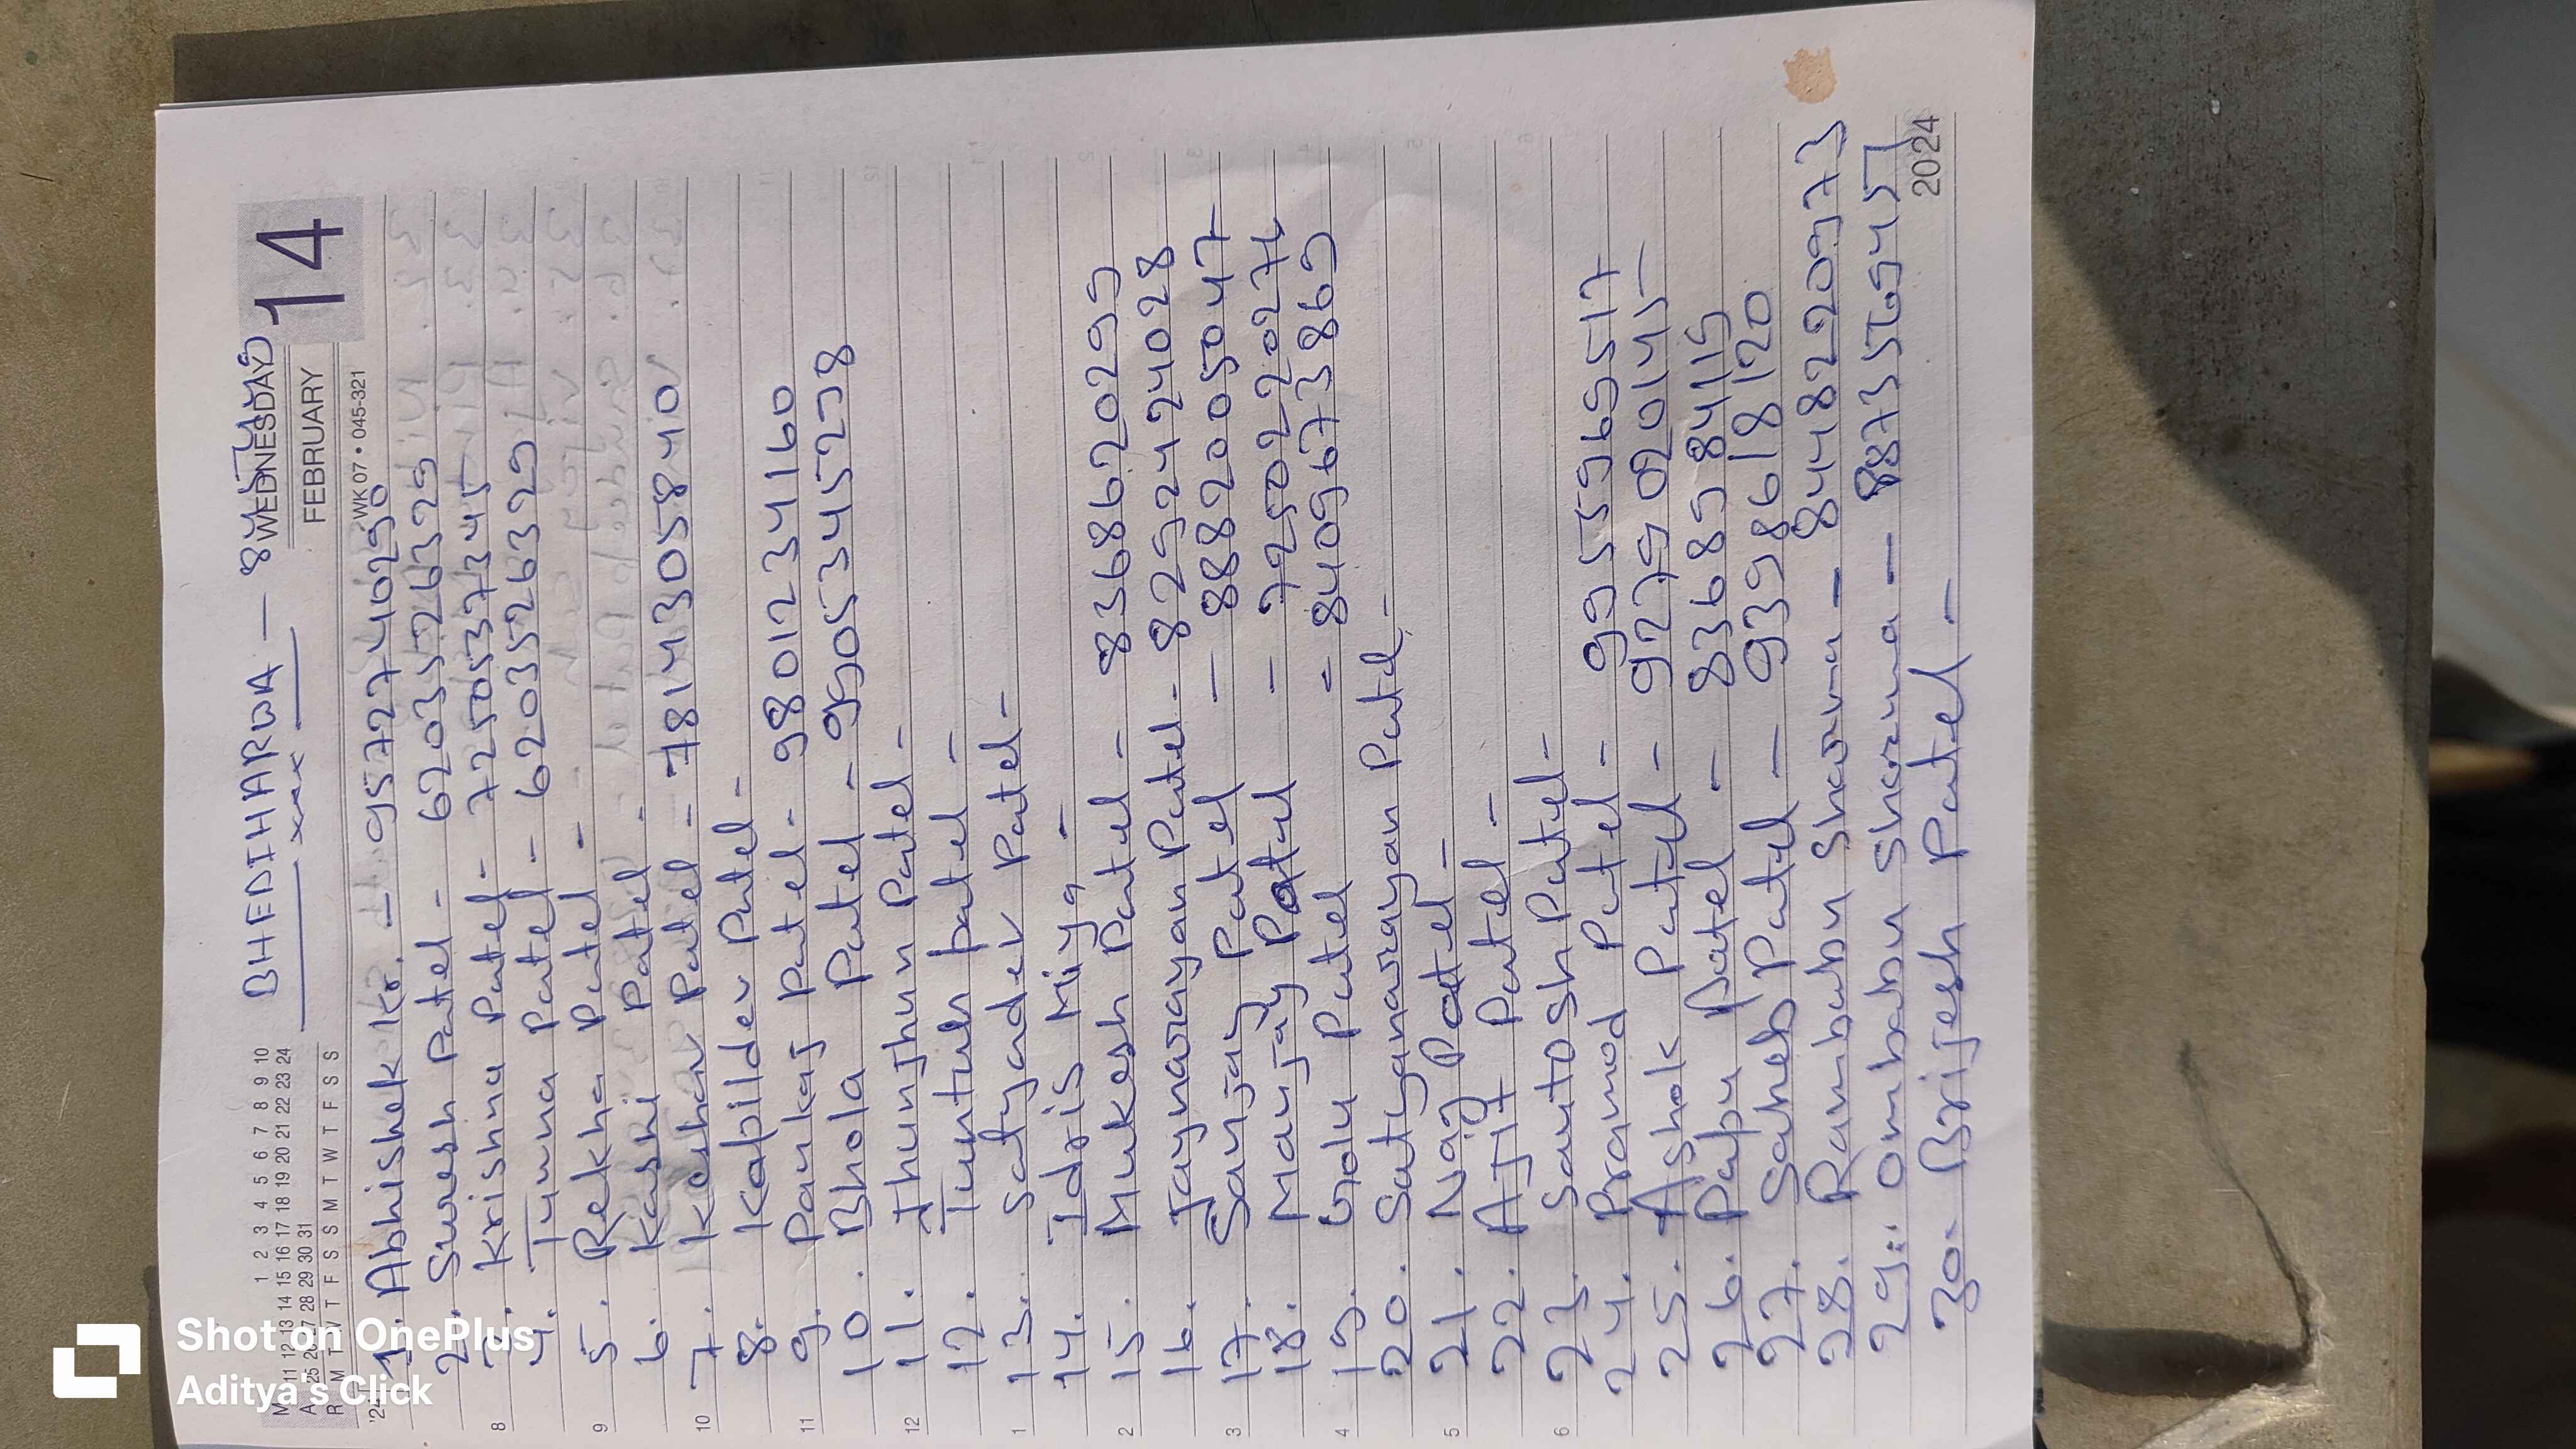 BHEDIHARWA - 845449
WEDNESDAY
14
FEBRUARY
WK 07 • 045-321
1 2 3 4 5 6 7 8 9 10
11 12 13 14 15 16 17 18 19 20 21 22 23 24
27 28 29 30 31
M T W T F S S M T W T F S S
1. Abhishek kr. - 9572740290
2. Suresh Patel - 6203526329
3. Krishna Patel - 7250537345
4. Tunna Patel - 6203526329
5. Rekha Patel -
6. Kashi Patel -
7. Keshav Patel - 7814305840
8. Kapildev Patel -
9. Pankaj Patel - 9801234160
10. Bhola Patel - 9905345238
11. Jhunjhun Patel -
12. Tuntun Patel -
13. Satyandev Patel -
14. Idris Miya -
15. Mukesh Patel - 8368620299
16. Jaynarayan Patel - 8292424028
17. Sanjay Patel - 8882005047
18. Manjay Patel - 7250222027
19. Golu Patel - 8409673869
20. Satyanarayan Patel -
21. Nag Patel -
22. Ajit Patel -
23. Santosh Patel -
24. Pramod Patel - 9955965517
25. Ashok Patel - 9279020145
26. Papu Patel - 8368984115
27. Saheb Patel - 9398618120
28. Rambabu Sharma - 8448220973
29. Ombabu Sharma - 8873556945
30. Brijesh Patel -
2024
8
9
10
11
12
1
2
3
4
5
6
Shot on OnePlus
Aditya's Click